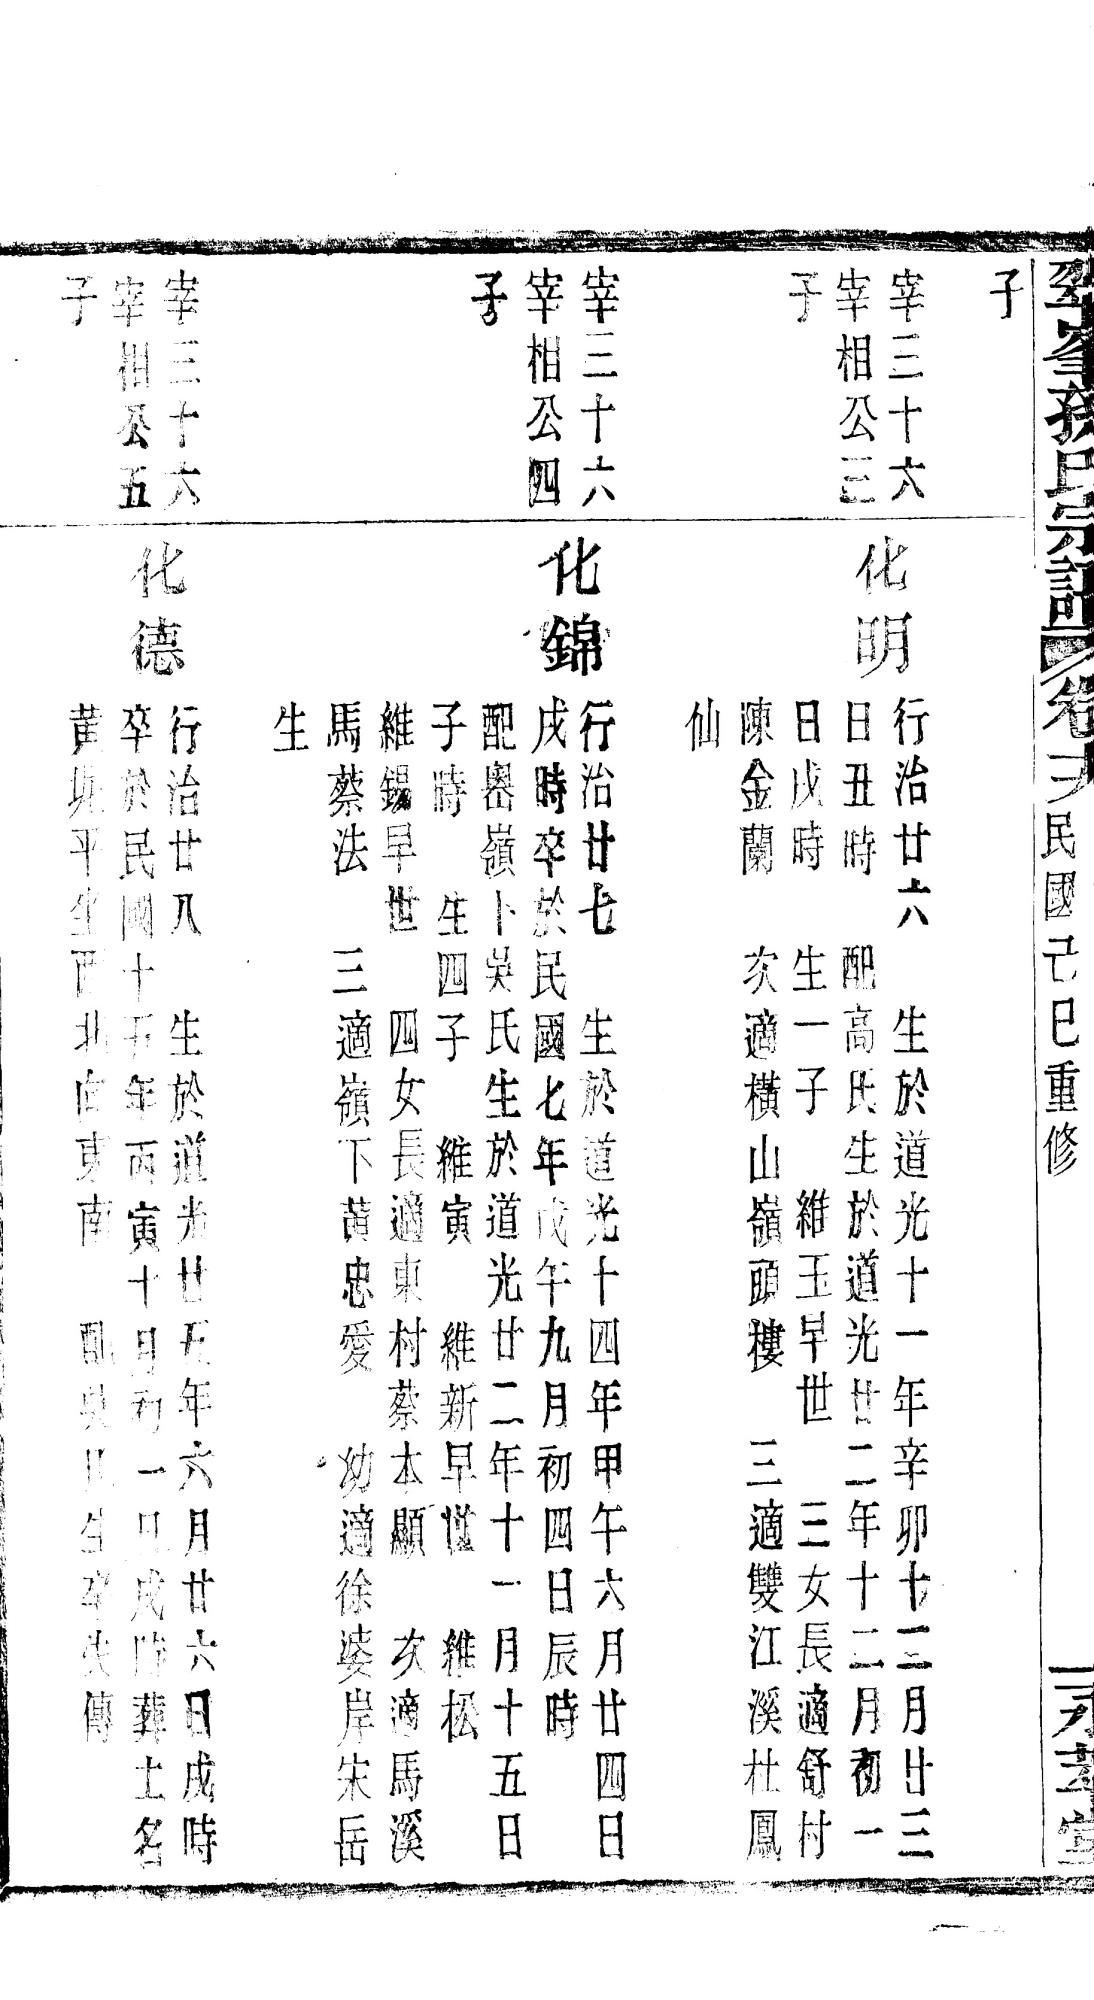 孫氏宗譜
卷
民國己巳重修
子
宰三十六
宰相公三
子
化明
行治廿六 生於道光十一年辛卯十二月廿三
日丑時 配高氏生於道光廿二年十二月初一
日戌時 生一子 維玉早世 三女長適舒村
陳金蘭 次適橫山嶺頭樓 三適雙江溪杜鳳
仙
宰三十六
宰相公四
子
化錦
行治廿七 生於道光十四年甲午六月廿四日
戌時卒於民國七年戊午九月初四日辰時
配嶴嶺卜吳氏生於道光廿二年十一月十五日
子時 生四子 維寅 維新早世 維松
維錫早世 四女長適東村蔡本顯 次適馬溪
馬蔡法 三適嶺下黃忠愛 幼適徐婆岸宋岳
生
宰三十六
宰相公五
子
化德
行治廿八 生於道光廿五年六月廿六日戌時
卒於民國十五年丙寅十月初一日戌時葬土名
黃 平坐西北向東南 配吳氏生卒失傳